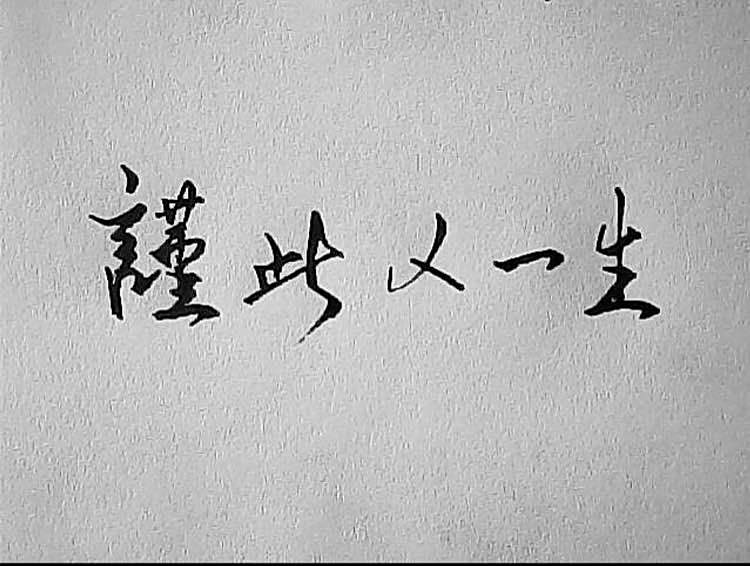 謹此乂一生